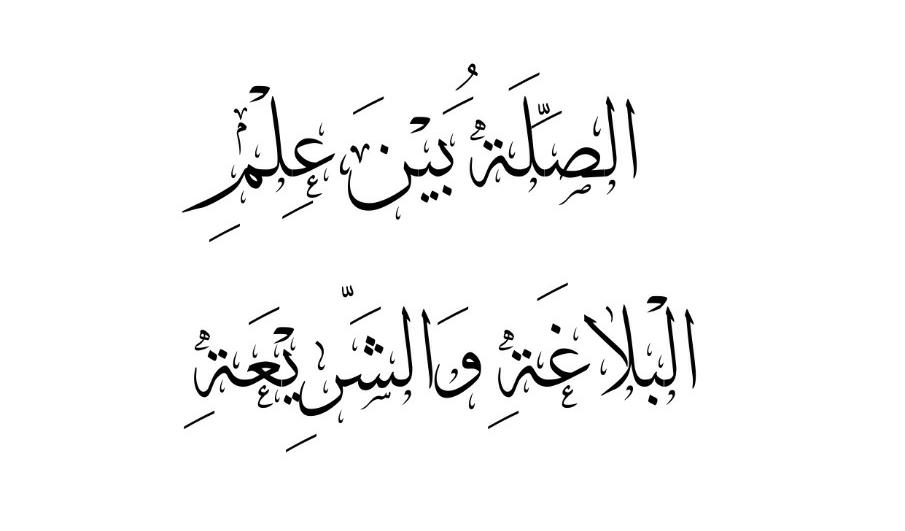 الصَّلَةُ بَيْنَ عِلْمِ
الْبَلاغَةِ وَالشَّرِيْعَةِ